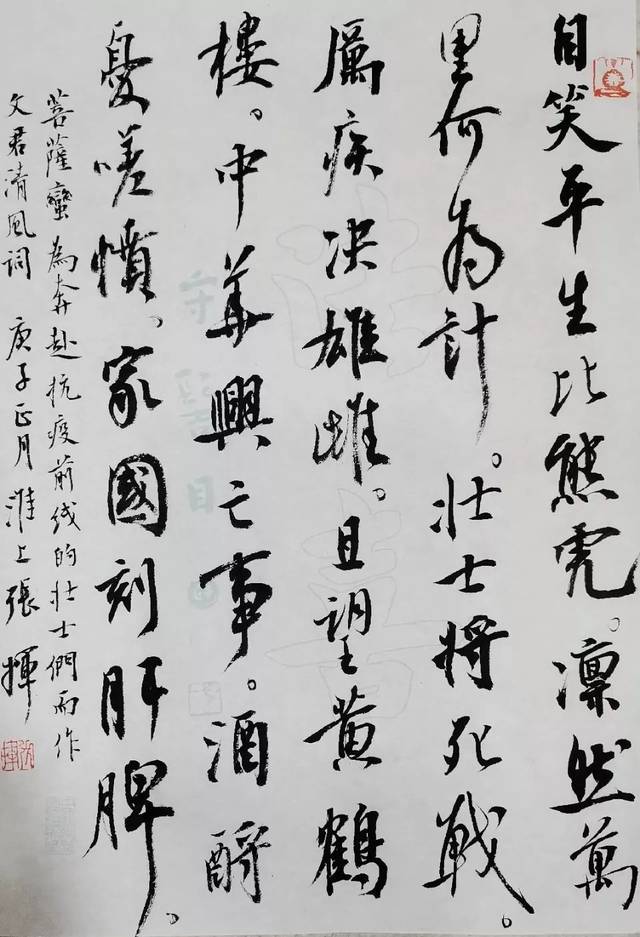 自笑平生比熊虎。凛然萬
里何為計。壯士將死戰。
厲疾决雄雌。且望黄鶴
樓。中華興亡事。酒酹
憂嗟憤。家國刻肝脾。
菩薩蠻 為奔赴抗疫前线的壮士們而作
文君清風词 庚子正月 淮上張揮